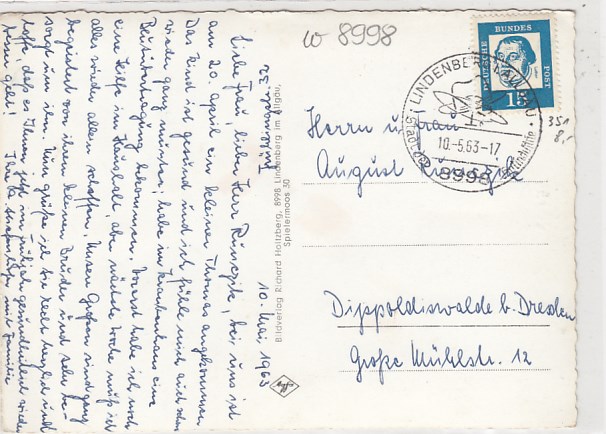 w 8998
DEUTSCHE BUNDESPOST
15
LINDENBERG (ALLGÄU)
10.-5.63-17
8998
351
8,-
Herrn u. Frau
August
Dippoldiswalde b. Dresden
Große Mühlstr. 12
10. Mai 1963
Liebe Frau, lieber Herr bei uns ist
am 20. April ein kleiner Thomas angekommen
Das Kind ist gesund und ich fühle mich auch schon
wieder ganz munter, habe im Krankenhaus eine
bekommen. Vorerst habe ich noch
eine Hilfe im Haushalt, aber nächste Woche muß ich
alles wieder allein schaffen. Unsere Großen sind ganz
begeistert von ihrem kleinen Bruder und sehr be-
sorgt um ihn. Nun grüße ich Sie recht herzlich und
hoffe, daß es Ihnen jetzt im gesundheitlich wieder
geht! Ihre mit Familie
Bildverlag Richard Holtzberg, 8998 Lindenberg im Allgäu,
Spietermoos 30